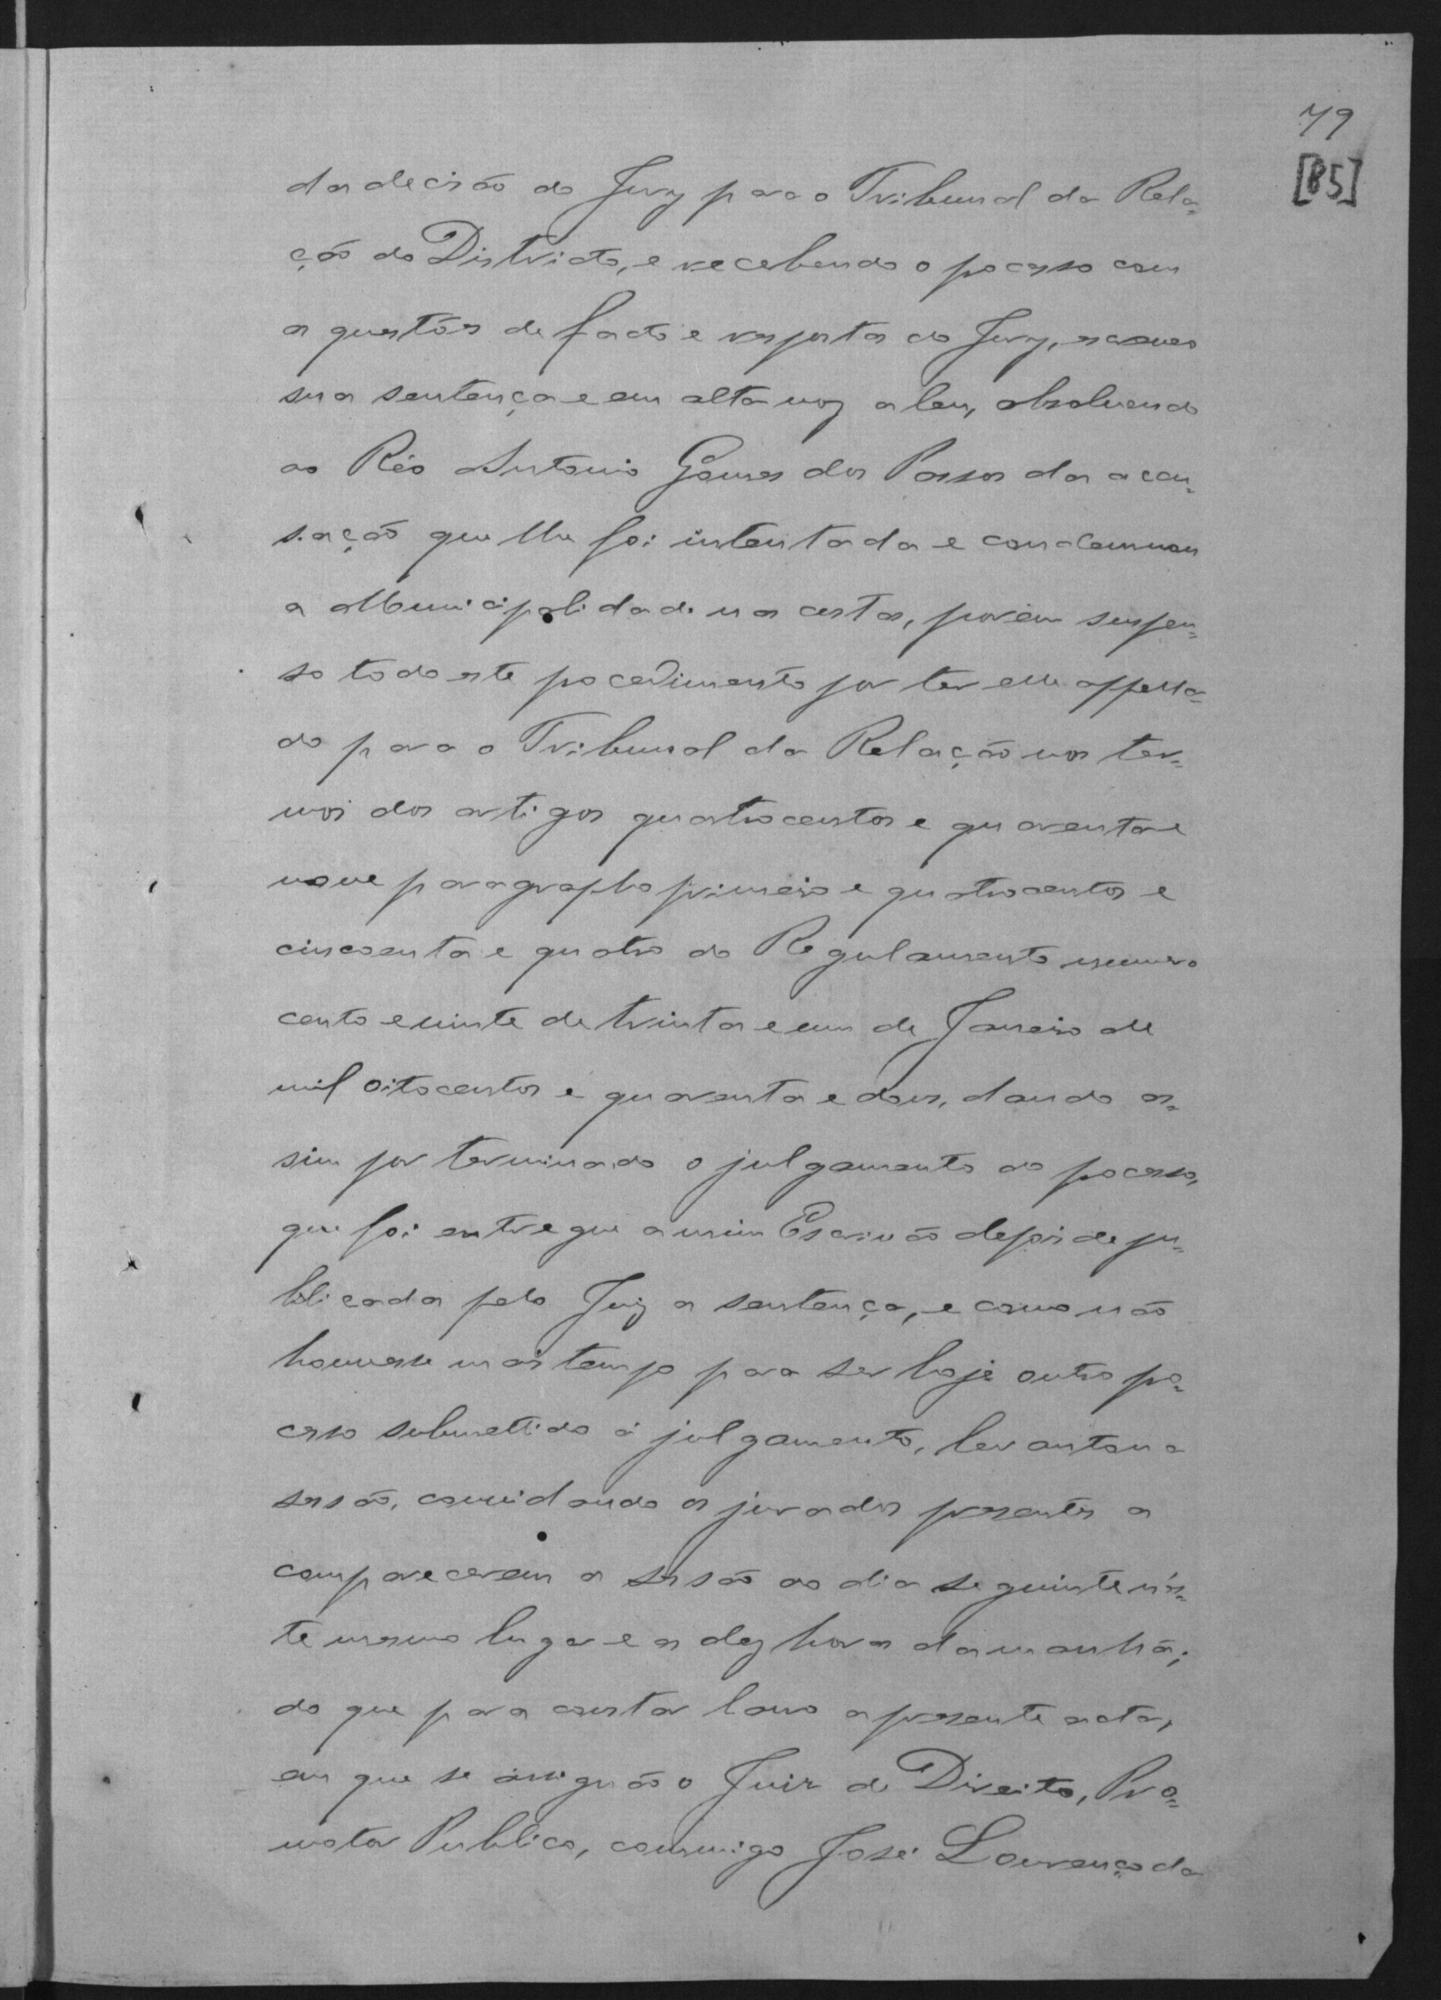 79
[85]
da decisão do Jury para o Tribunal da Rela-
ção do Districto, e recebendo o pocesso com
as questões de facto e respostas do Jury, escreveo
sua sentença e em alta voz a leu, absolvendo
ao Réo Antonio Gomes dos Passos da accu-
sação que lhe foi intentada e condemnou
a Municipalidade nas custas, porém suspen-
so todo este pocedimento por ter elle appella-
do para o Tribunal da Relação nos ter-
mos dos artigos quatrocentos e quarenta e
nove paragrapho primeiro e quatrocentos e
cincoenta e quatro do Regulamento numero
cento e vinte de trinta e um de Janeiro de
mil oitocentos e quarenta e dous, dando as-
sim por terminado o julgamento do pocesso,
que foi entregue a mim Escrivão depois de pu-
blicada pelo Juiz a sentença, e como não
houvesse mais tempo para ser hoje outro po-
cesso submettido á julgamento, levantou a
sessão, convidando os jurados presentes a
comparecerem a sessão do dia seguinte nes-
te mesmo lugar e as dez horas da manhã;
do que para constar lavro a presente acta,
em que se assignão o Juiz de Direito, Pro-
motor Publico, commigo José Lourenço da